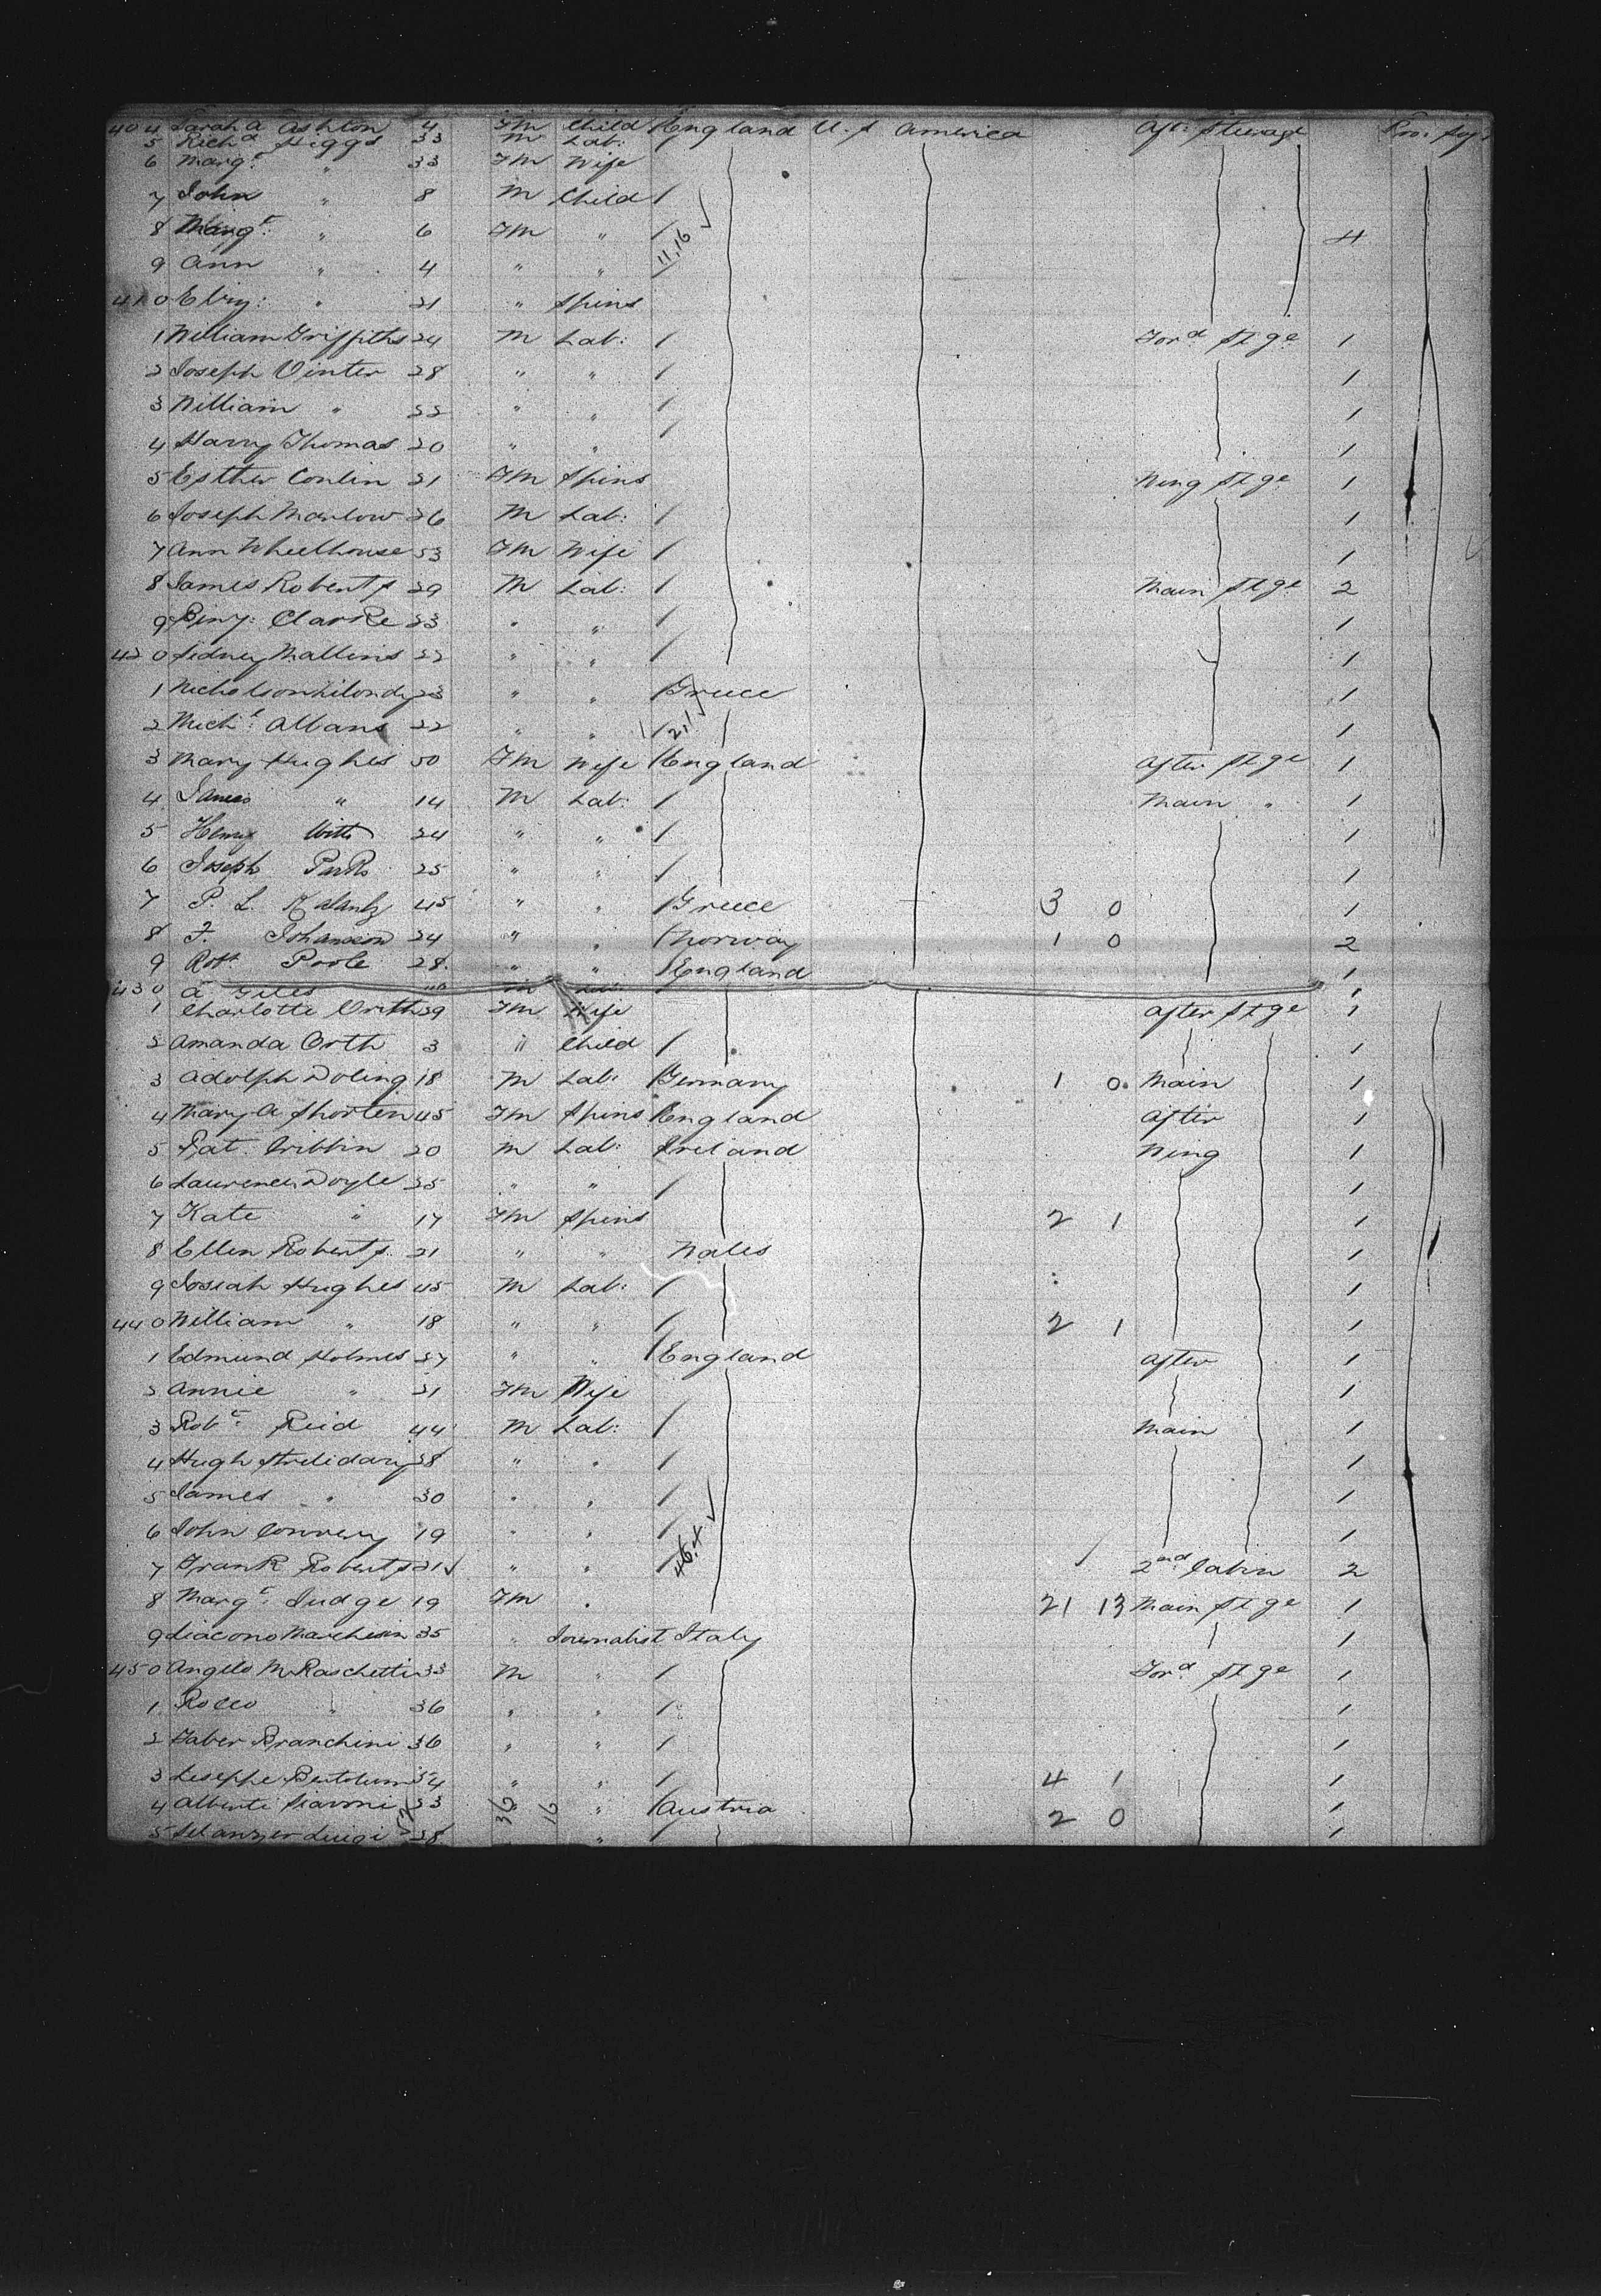 404 Sarah A Ashton 4 Fm Child England U. S America Aft: Steerage Pro: Soj:
5 Rich.d Higgs 33 M Lab:
6 Marg.t " 33 Fm Wife
7 John " 8 M Child /
8 Marg.t " 6 Fm " / 11,16 4
9 Ann " 4 " " /
410 Eliz: " 21 " Spins
1 William Griffiths 24 M Lab: / For.d St ge 1
2 Joseph Vinter 28 " " / 1
3 William " 22 " " / 1
4 Harry Thomas 20 " " / 1
5 Esther Conlin 21 Fm Spins Wing St ge 1
6 Joseph Marlow 26 M Lab: / 1
7 Ann Wheelhouse 53 Fm Wife / 1
8 James Roberts 29 M Lab: / Main St ge 2
9 Binj: Clarke 23 " " / 1
420 Sidney Mallins 22 " " / 1
1 23 " " / Greece 1
2 Mich.l Albans 22 " " / 2,1 1
3 Mary Hughes 50 Fm Wife / England After St ge 1
4 James " 14 M Lab: / Main " 1
5 Henry Witts 24 " " / 1
6 Joseph Parks 25 " " / 1
7 P. L. 45 " " / Greece 3 0 1
8 F. Johansson 24 " " / Norway 1 0 2
9 Rob.t Poole 28 " " / England 1
430 A Giles M Lab: / 1
1 Charlotte Orth 29 Fm Wife After St ge 1
2 Amanda Orth 3 " Child / 1
3 Adolph Doling 18 M Lab: / Germany 1 0 Main 1
4 Mary A Shorten 45 Fm Spins England After 1
5 Pat: Cribbin 20 M Lab: Ireland Wing 1
6 Laurence Doyle 25 " " / 1
7 Kate " 17 Fm Spins 2 1 1
8 Ellen Roberts 21 " " Wales 1
9 Josiah Hughes 45 M Lab: / 1
440 William " 18 " " / 2 1 1
1 Edmund Holmes 27 " " / England After 1
2 Annie " 21 Fm Wife 1
3 Rob.t Reid 44 M Lab: / Main 1
4 Hugh 28 " " / 1
5 James " 30 " " / 1
6 John Convery 19 " " / 1
7 Frank Roberts 21 " " / 46,4 2nd Cabin 2
8 Marg.t Judge 19 Fm " 21 13 Main St ge 1
9 Giacono Marchesin 35 " Journalist Italy 1
450 Angelo M Raschetti 33 M " / For.d St ge 1
1 Rocco " 36 " " / 1
2 Faber Branchini 36 " " / 1
3 " " / 4 1 1
4 Alberti Siavoni 33 " " / Austria 2 0 1
5 Luigi 28 " / 1
36 16